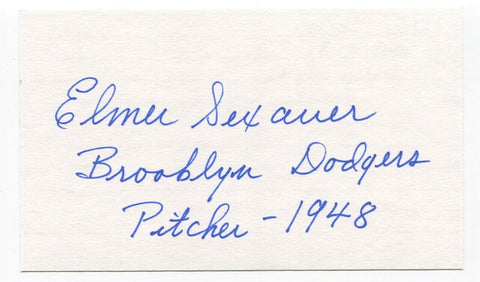 Elmer Sexauer
Brooklyn Dodgers
Pitcher - 1948